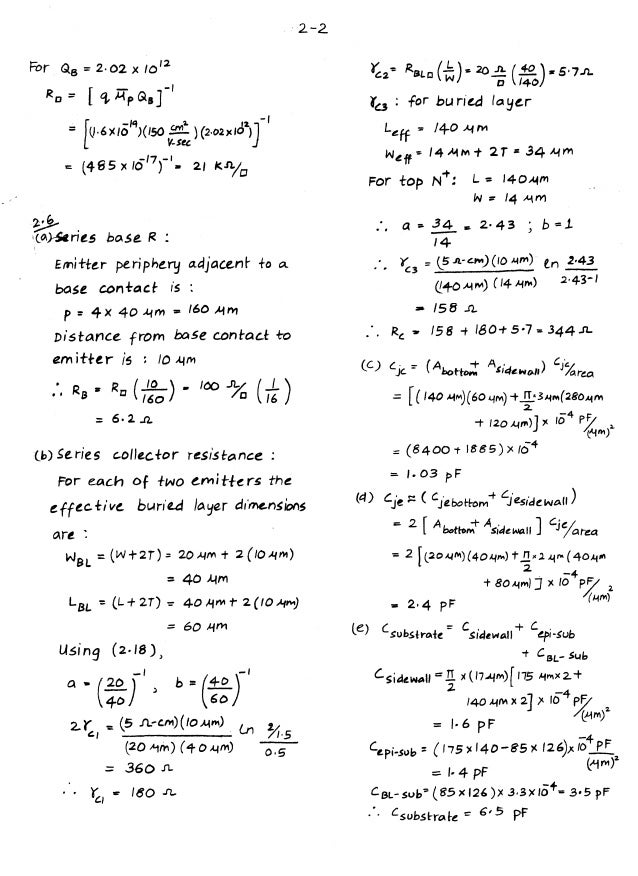 2-2
For Q_B = 2.02 x 10^12
R□ = [q μ̄p Q_B]^-1
= [(1.6x10^-19)(150 cm²/V-sec)(2.02x10^12)]^-1
= (485 x 10^-17)^-1 = 21 KΩ/□
2.6
(a) Series base R :
Emitter periphery adjacent to a
base contact is :
p = 4 x 40 μm = 160 μm
Distance from base contact to
emitter is : 10 μm
∴ R_B = R□ (10/160) = 100 Ω/□ (1/16)
= 6.2 Ω
(b) Series collector resistance :
For each of two emitters the
effective buried layer dimensions
are :
W_BL = (W+2T) = 20 μm + 2(10 μm)
= 40 μm
L_BL = (L+2T) = 40 μm + 2(10 μm)
= 60 μm
Using (2.18),
a = (20/40)^-1, b = (40/60)^-1
2r_c1 = (5 Ω-cm)(10 μm)/(20 μm)(40 μm) ln (2/1.5)/0.5
= 360 Ω
∴ r_c1 = 180 Ω
r_c2 = R_BL□ (L/W) = 20 Ω/□ (40/140) = 5.7Ω
r_c3 : for buried layer
L_eff = 140 μm
W_eff = 14 μm + 2T = 34 μm
For top N⁺: L = 140 μm
W = 14 μm
∴ a = 34/14 = 2.43 ; b = 1
∴ r_c3 = (5 Ω-cm)(10 μm)/(140 μm)(14 μm) ln 2.43/2.43-1
= 158 Ω
∴ R_c = 158 + 180 + 5.7 = 344 Ω
(C) C_jc = (A_bottom + A_sidewall) C_jc/area
= [(140 μm)(60 μm) + π/2 · 3 μm(280 μm
+ 120 μm)] x 10^-4 pF/(μm)²
= (8400 + 1885) x 10^-4
= 1.03 pF
(d) C_je ≈ (C_jebottom + C_jesidewall)
= 2 [A_bottom + A_sidewall] C_je/area
= 2 [(20 μm)(40 μm) + π/2 x 2 μm (40 μm
+ 80 μm)] x 10^-4 pF/(μm)²
= 2.4 pF
(e) C_substrate = C_sidewall + C_epi-sub
+ C_BL-sub
C_sidewall = π/2 x (17 μm)[175 μm x 2 +
140 μm x 2] x 10^-4 pF/(μm)²
= 1.6 pF
C_epi-sub = (175 x 140 - 85 x 126) x 10^-4 pF/(μm)²
= 1.4 pF
C_BL-sub = (85 x 126) x 3.3 x 10^-4 = 3.5 pF
∴ C_substrate = 6.5 pF